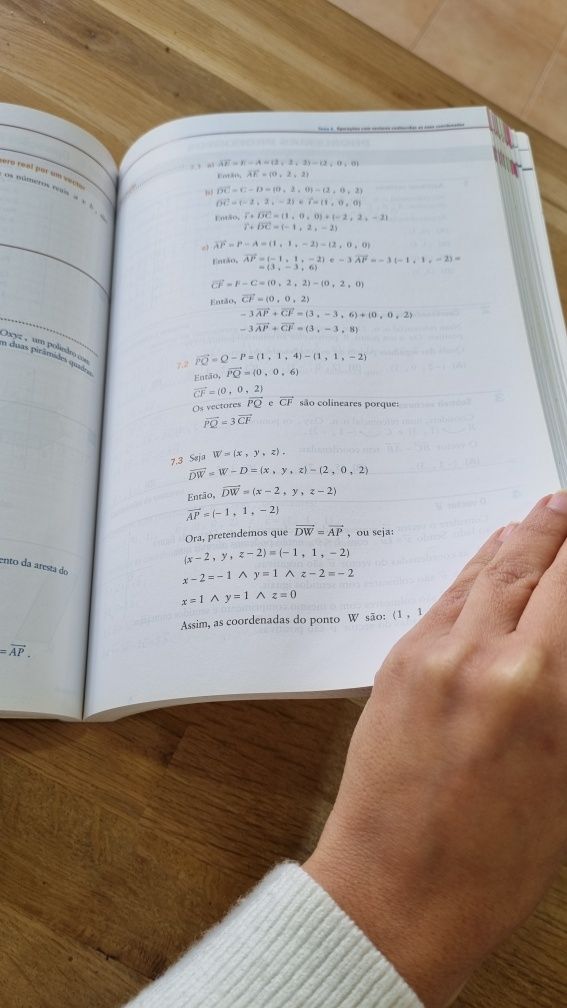 mero real por um vector
os números reais a e b, do
Oxyz, um poliedro com
m duas pirâmides quadran
ento da aresta do
= AP⃗ .
Tema 2. Operações com vectores conhecidas as suas coordenadas
a) AE⃗ = E − A = (2 , 2 , 2) − (2 , 0 , 0)
Então, AE⃗ = (0 , 2 , 2)
b) DC⃗ = C − D = (0 , 2 , 0) − (2 , 0 , 2)
DC⃗ = (−2 , 2 , −2) e i⃗ = (1 , 0 , 0)
Então, i⃗ + DC⃗ = (1 , 0 , 0) + (−2 , 2 , −2)
i⃗ + DC⃗ = (−1 , 2 , −2)
c) AP⃗ = P − A = (1 , 1 , −2) − (2 , 0 , 0)
Então, AP⃗ = (−1 , 1 , −2) e −3 AP⃗ = −3 (−1 , 1 , −2) =
= (3 , −3 , 6)
CF⃗ = F − C = (0 , 2 , 2) − (0 , 2 , 0)
Então, CF⃗ = (0 , 0 , 2)
−3 AP⃗ + CF⃗ = (3 , −3 , 6) + (0 , 0 , 2)
−3 AP⃗ + CF⃗ = (3 , −3 , 8)
7.2 PQ⃗ = Q − P = (1 , 1 , 4) − (1 , 1 , −2)
Então, PQ⃗ = (0 , 0 , 6)
CF⃗ = (0 , 0 , 2)
Os vectores PQ⃗ e CF⃗ são colineares porque:
PQ⃗ = 3 CF⃗
7.3 Seja W = (x , y , z) .
DW⃗ = W − D = (x , y , z) − (2 , 0 , 2)
Então, DW⃗ = (x − 2 , y , z − 2)
AP⃗ = (−1 , 1 , −2)
Ora, pretendemos que DW⃗ = AP⃗ , ou seja:
(x − 2 , y , z − 2) = (−1 , 1 , −2)
x − 2 = −1 ∧ y = 1 ∧ z − 2 = −2
x = 1 ∧ y = 1 ∧ z = 0
Assim, as coordenadas do ponto W são: (1 , 1